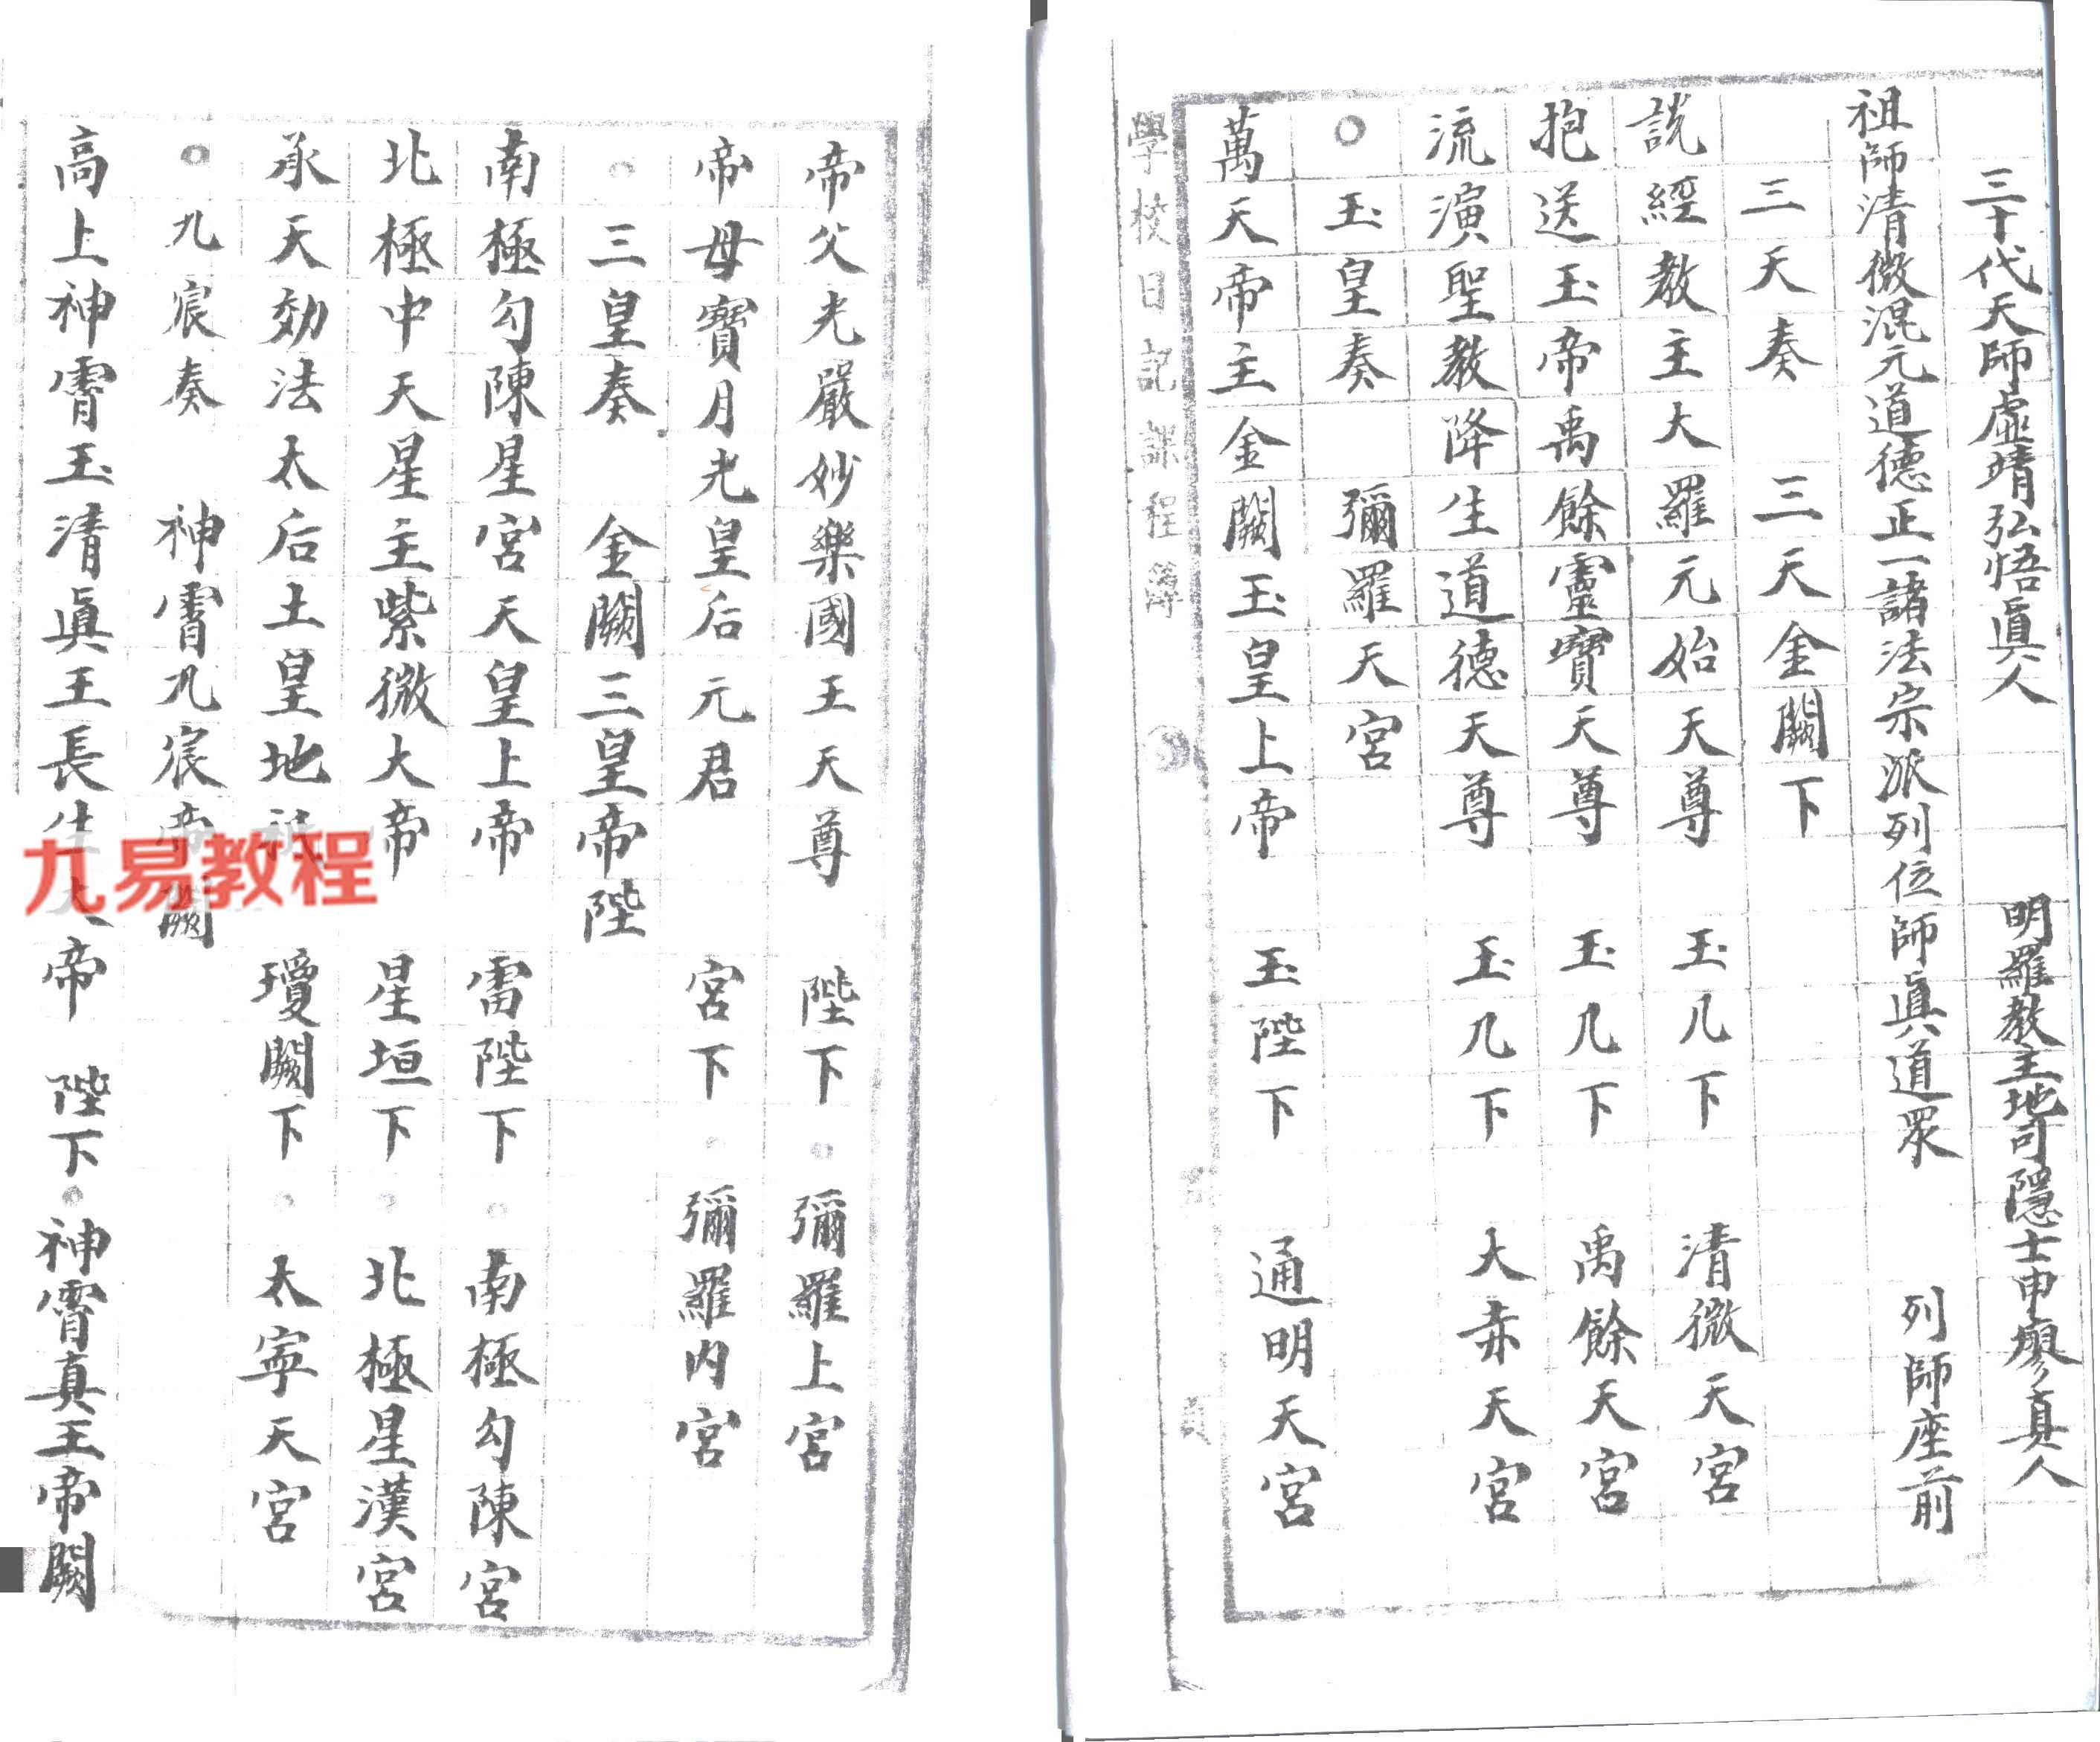 三十代天師虛靖弘悟眞人　明羅教主地司隱士申廖真人
祖師清微混元道德正一諸法宗派列位師眞道眾　列師座前
三天奏　三天金闕下
說經教主大羅元始天尊　玉几下　清微天宮
抱送玉帝禹餘靈寶天尊　玉几下　禹餘天宮
流演聖教降生道德天尊　玉几下　大赤天宮
○　玉皇奏　彌羅天宮
萬天帝主金闕玉皇上帝　玉陛下　通明天宮
學校日記課程簿
帝父光嚴妙樂國王天尊　陛下○彌羅上宮
帝母寶月光皇后元君　宮下○彌羅內宮
○三皇奏　金闕三皇帝陛
南極勾陳星宮天皇上帝　雷陛下○南極勾陳宮
北極中天星主紫微大帝　星垣下○北極星漢宮
承天効法太后土皇地祇　瓊闕下○太寧天宮
○九宸奏　神霄九宸帝闕
高上神霄玉清眞王長生大帝　陛下○神霄真王帝闕
九易教程